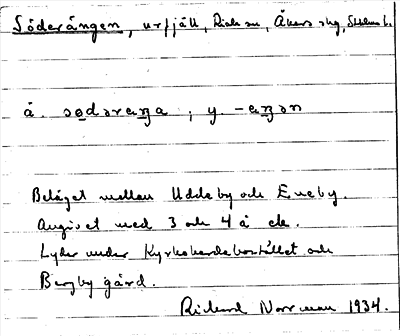 Söderängen, urfjäll, Riala sn, Åkers skg, Sthlms l.
å. sødəraŋa ; y. -aŋən
Beläget mellan Uddeby och Eneby.
Angivet med 3 och 4 å ek.
Lyder under Kyrkoherdebostället och
Bergby gård.
Richard Norrman 1934.